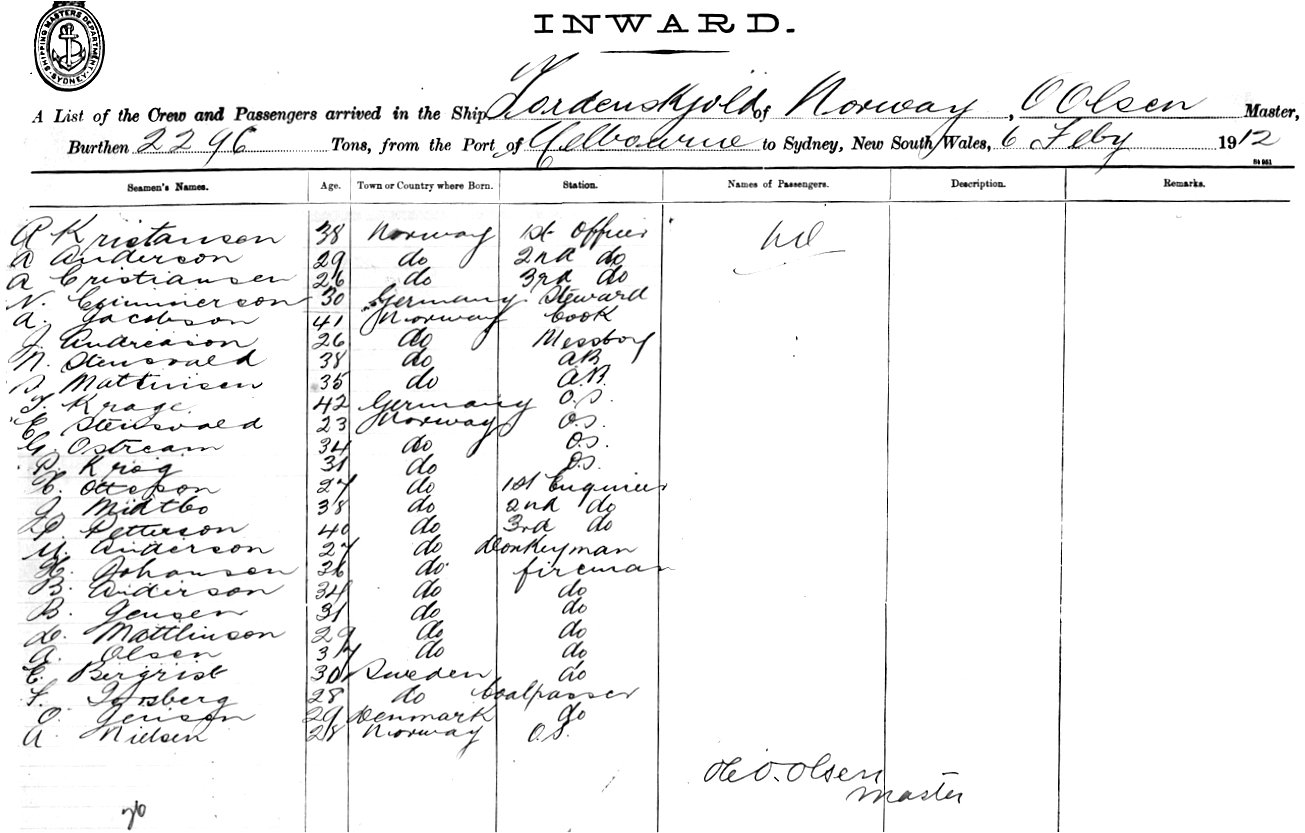 SHIPPING MASTERS DEPARTMENT SYDNEY
INWARD.
A List of the Crew and Passengers arrived in the Ship Tordenskjold of Norway, O Olsen Master,
Burthen 2296 Tons, from the Port of Melbourne to Sydney, New South Wales, 6 Feby 1912
Seamen's Names. Age. Town or Country where Born. Station. Names of Passengers. Description. Remarks.
A Kristansen 38 Norway 1st Officer Nil
A Anderson 29 do 2nd do
A Cristiansen 26 do 3rd do
N. 30 Germany. Steward
A. Jacobson 41 Norway Cook
J. Andreason 26 do Messboy
N. Stensvald 38 do AB
Mathisen 35 do A.B.
T. Krage. 42 Germany O.S.
E Stensvald 23 Norway O.S.
G Ostream 34 do O.S.
Krog 31 do O.S.
Otteson 27 do 1st Engineer
J. Midtbo 38 do 2nd do
P. Petterson 40 do 3rd do
M. Anderson 27 do Donkeyman
H. Johansen 26 do fireman
B. Anderson 34 do do
B. Jensen 31 do do
L. Mattlinson 29 do do
A. Olsen 37 do do
E. Bergrist 30 Sweden do
F. Forsberg 28 do Coalpasser
O. Jenson 29 Denmark do
A. Nielsen 28 Norway O.S.
Ole O. Olsen
Master